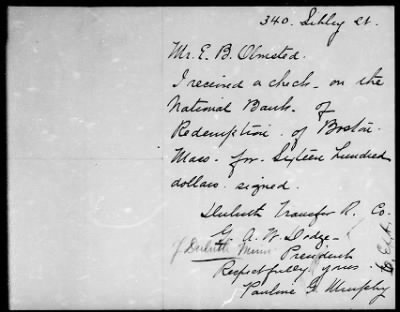 340. Sibley St.
Mr. E. B. Olmsted.
I received a check - on the
National Bank - of
Redemption - of Boston -
Mass - for Sixteen hundred
dollars signed.
Duluth Transfer R. Co.
G. A. W. Dodge -
of Duluth Minn President
Respectfully yours -
Pauline G Murphy